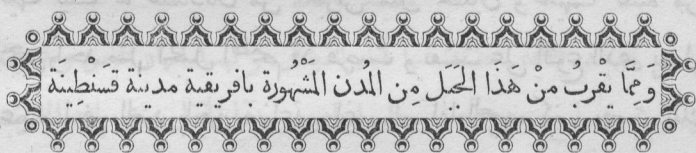 وَمِمَّا يقْربُ منْ هَذَا الجَبَل مِن المُدن المَشْهُورة بافريقية مدينة قسَنْطِينَة